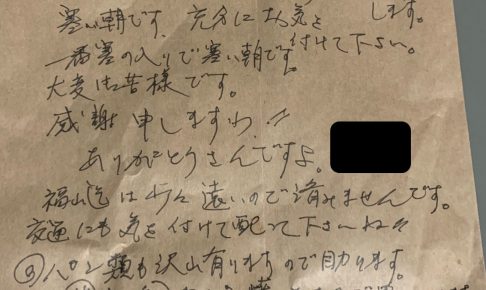 寒い朝です。充分にお気を します。
一番寒の入りで寒い朝です。付けて下さい。
大変御苦様です。
感謝申しますわ〃
ありがとうさんですよ。
福山迄は 遠いので済みませんです。
交通にも気を付けて配って下さいね〃
パン類も沢山有りますので助ります。